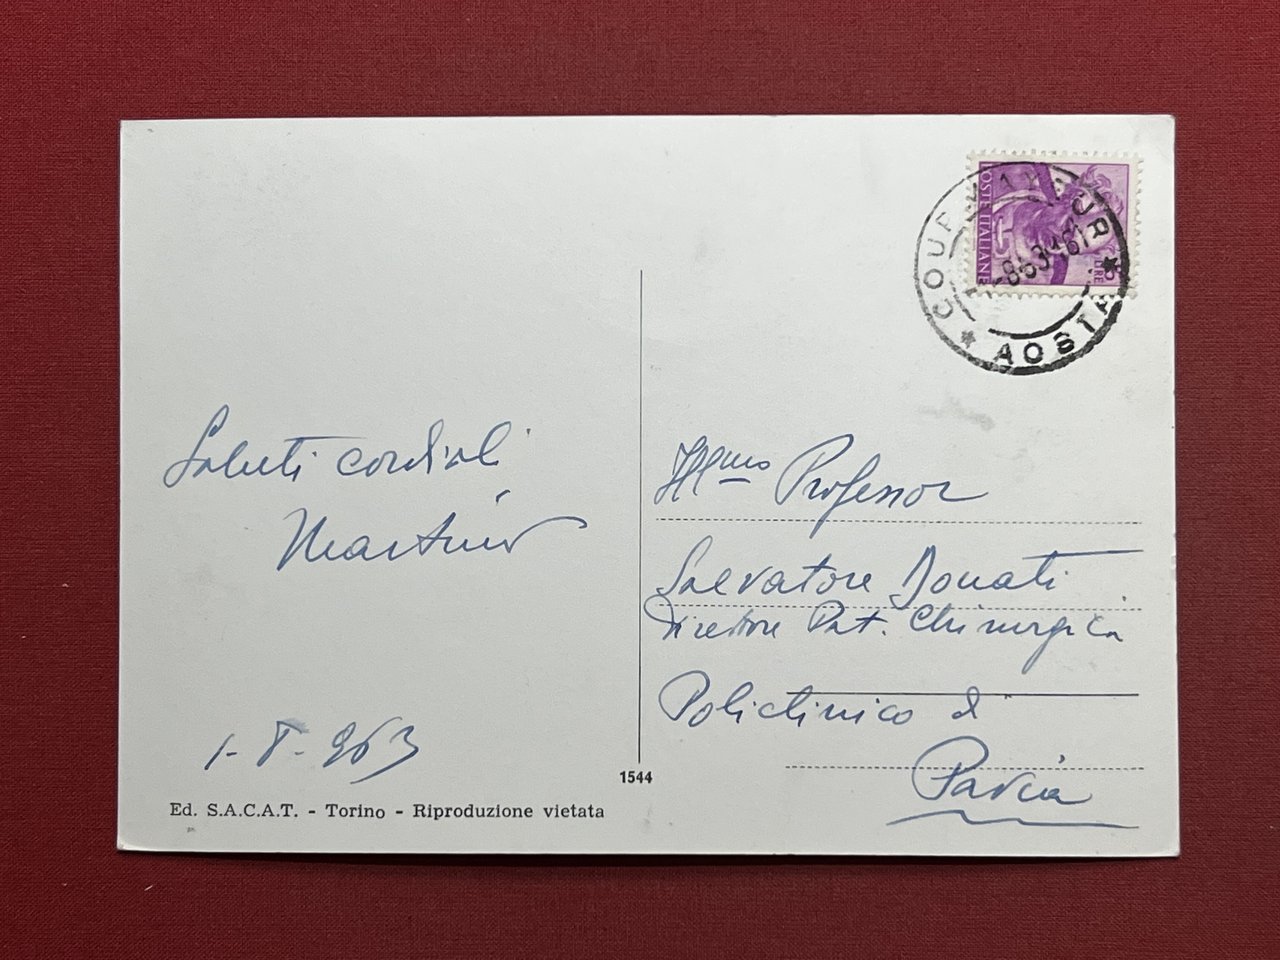 POSTE ITALIANE
LIRE
COURMAYEUR
* AOSTA *
Saluti cordiali
1-8-963
Ill.mo Professor
Salvatore Donati
Direttore Pat. Chirurgica
Policlinico di
Pavia
1544
Ed. S.A.C.A.T. - Torino - Riproduzione vietata